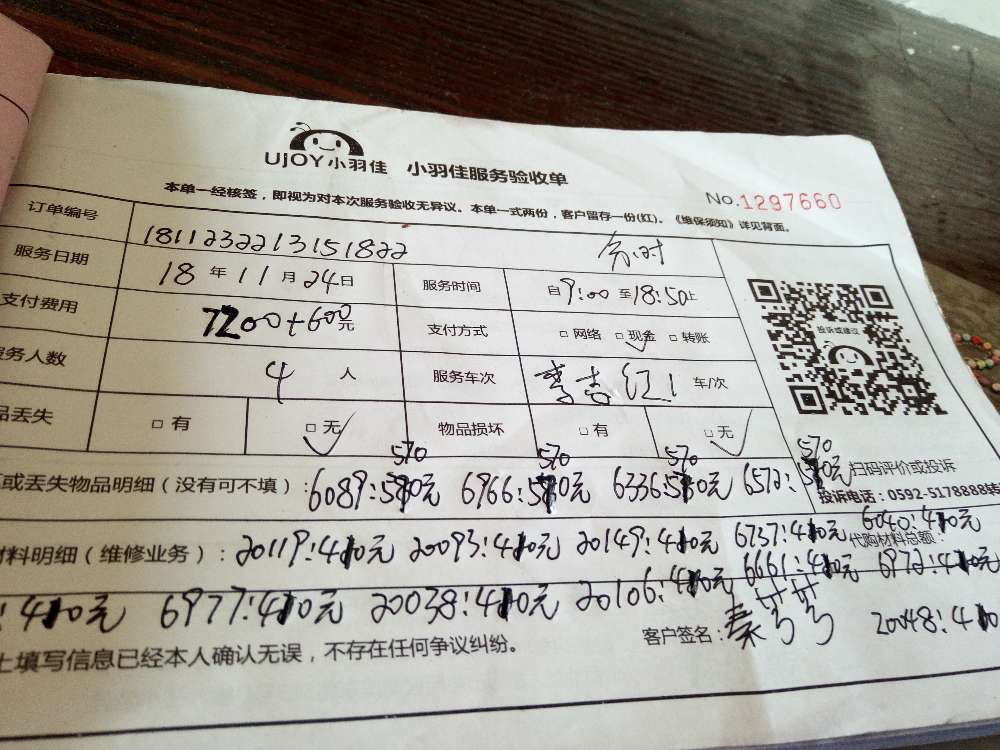 UJOY小羽佳 小羽佳服务验收单
No.1297660
本单一经核签，即视为对本次服务验收无异议。本单一式两份，客户留存一份(红)。《维保须知》详见背面。
订单编号 1811232213151822
服务日期 18年11月24日 服务时间 自9:00至18:50止
支付费用 7200+600元 支付方式 □网络 □现金 □转账
服务人数 4人 服务车次 李吉红1车/次
品丢失 □有 □无 物品损坏 □有 □无
投诉或建议
扫码评价或投诉
投诉电话：0592-5178888转
570 570 570 570
或丢失物品明细（没有可不填）：6089:570元 6966:570元 6336:570元 6572:570元
材料明细（维修业务）：20119:410元 20093:410元 20149:410元 6737:410元 6040:410元
代购材料总额：
:410元 6977:410元 20038:410元 20106:410元 6661:410元 6972:410元
客户签名：秦 20048:410
上填写信息已经本人确认无误，不存在任何争议纠纷。